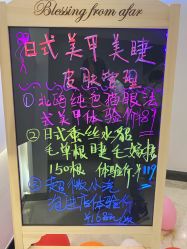 Blessing from afar
日式美甲美睫
皮肤管理
①纯色猫眼法
式美甲体验价89
②日式蚕丝水貂
毛单根睫毛嫁接
150根 体验价¥119
③超微小泡
体验价
¥168元/次